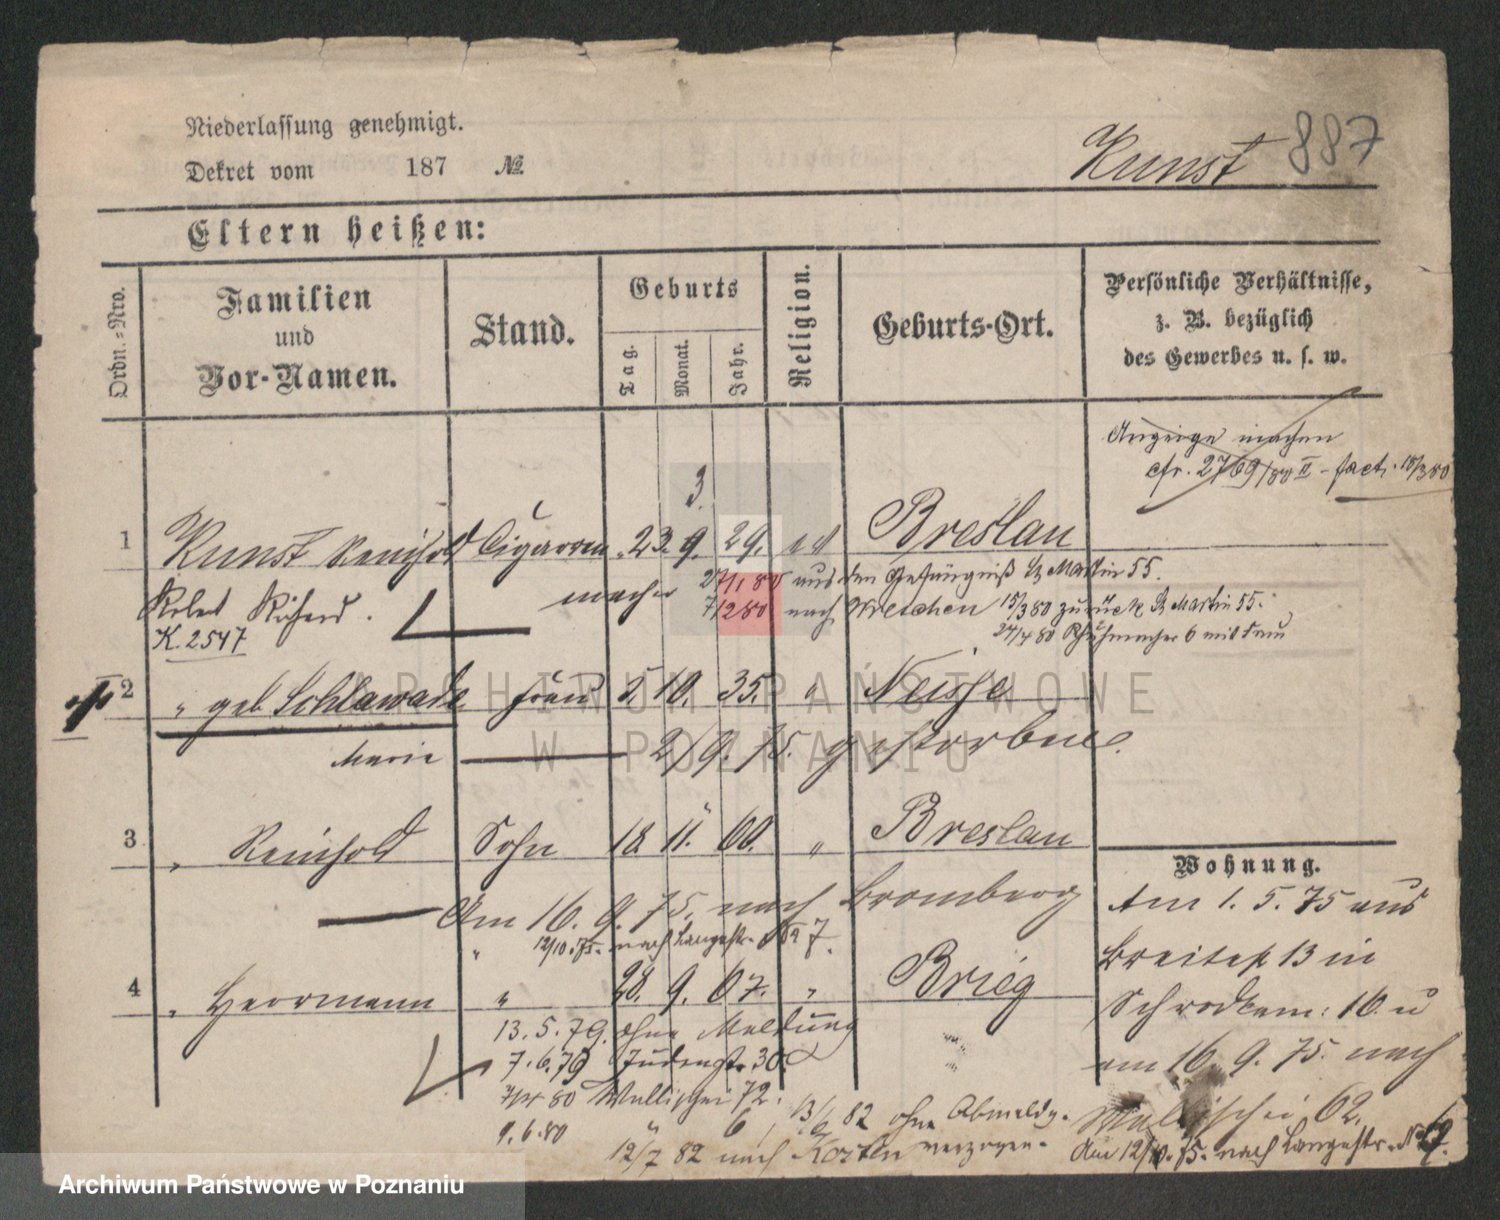 Niederlassung genehmigt.
Dekret vom 187 №
Kunst 887
Eltern heißen:
Ordn.-Nro.
Familien und Vor-Namen.
Stand.
Geburts
Tag. Monat. Jahr.
Religion.
Geburts-Ort.
Persönliche Verhältnisse,
z. B. bezüglich
des Gewerbes u. s. w.
Anzeige machen
cfr. 2769/80 II - fact. 18/3 80
3.
1 Kunst Reinhold Cigarren 23. 9. 29. ev Breslau
macher 27/1 80 aus dem Gefängniß St Martin 55.
Robert Richard. 7/2 80 nach Wreschen 15/3 80 zurück St Martin 55.
K. 2547 24/4 80 6 mit Frau
2 " geb Schlawade Frau 5. 10. 35. " Neisse
Marie 2/9. 75. gestorben.
3 " Reinhold Sohn 18. 11. 60. " Breslau
Am 16. 9. 75. nach Bromberg
" 12/10. 75. nach Langestr. No 7.
4 " Herrmann " 28. 9. 67. " Brieg
13. 5. 79. ohne Meldung
7. 6. 79 Judenstr. 30
80 Wallischei 72.
9. 6. 80 " 6, 13/6 82 ohne Abmeldg. verzogen.
12/7 82 nach Kosten
Wohnung.
Am 1. 5. 75 aus
Breitestr 13 in
Schrodkam: 10. u
am 16. 9. 75. nach
Wallischei 62.
Am 12/10. 75. nach Langestr. No 7.
ARCHIWUM PAŃSTWOWE
W POZNANIU
Archiwum Państwowe w Poznaniu